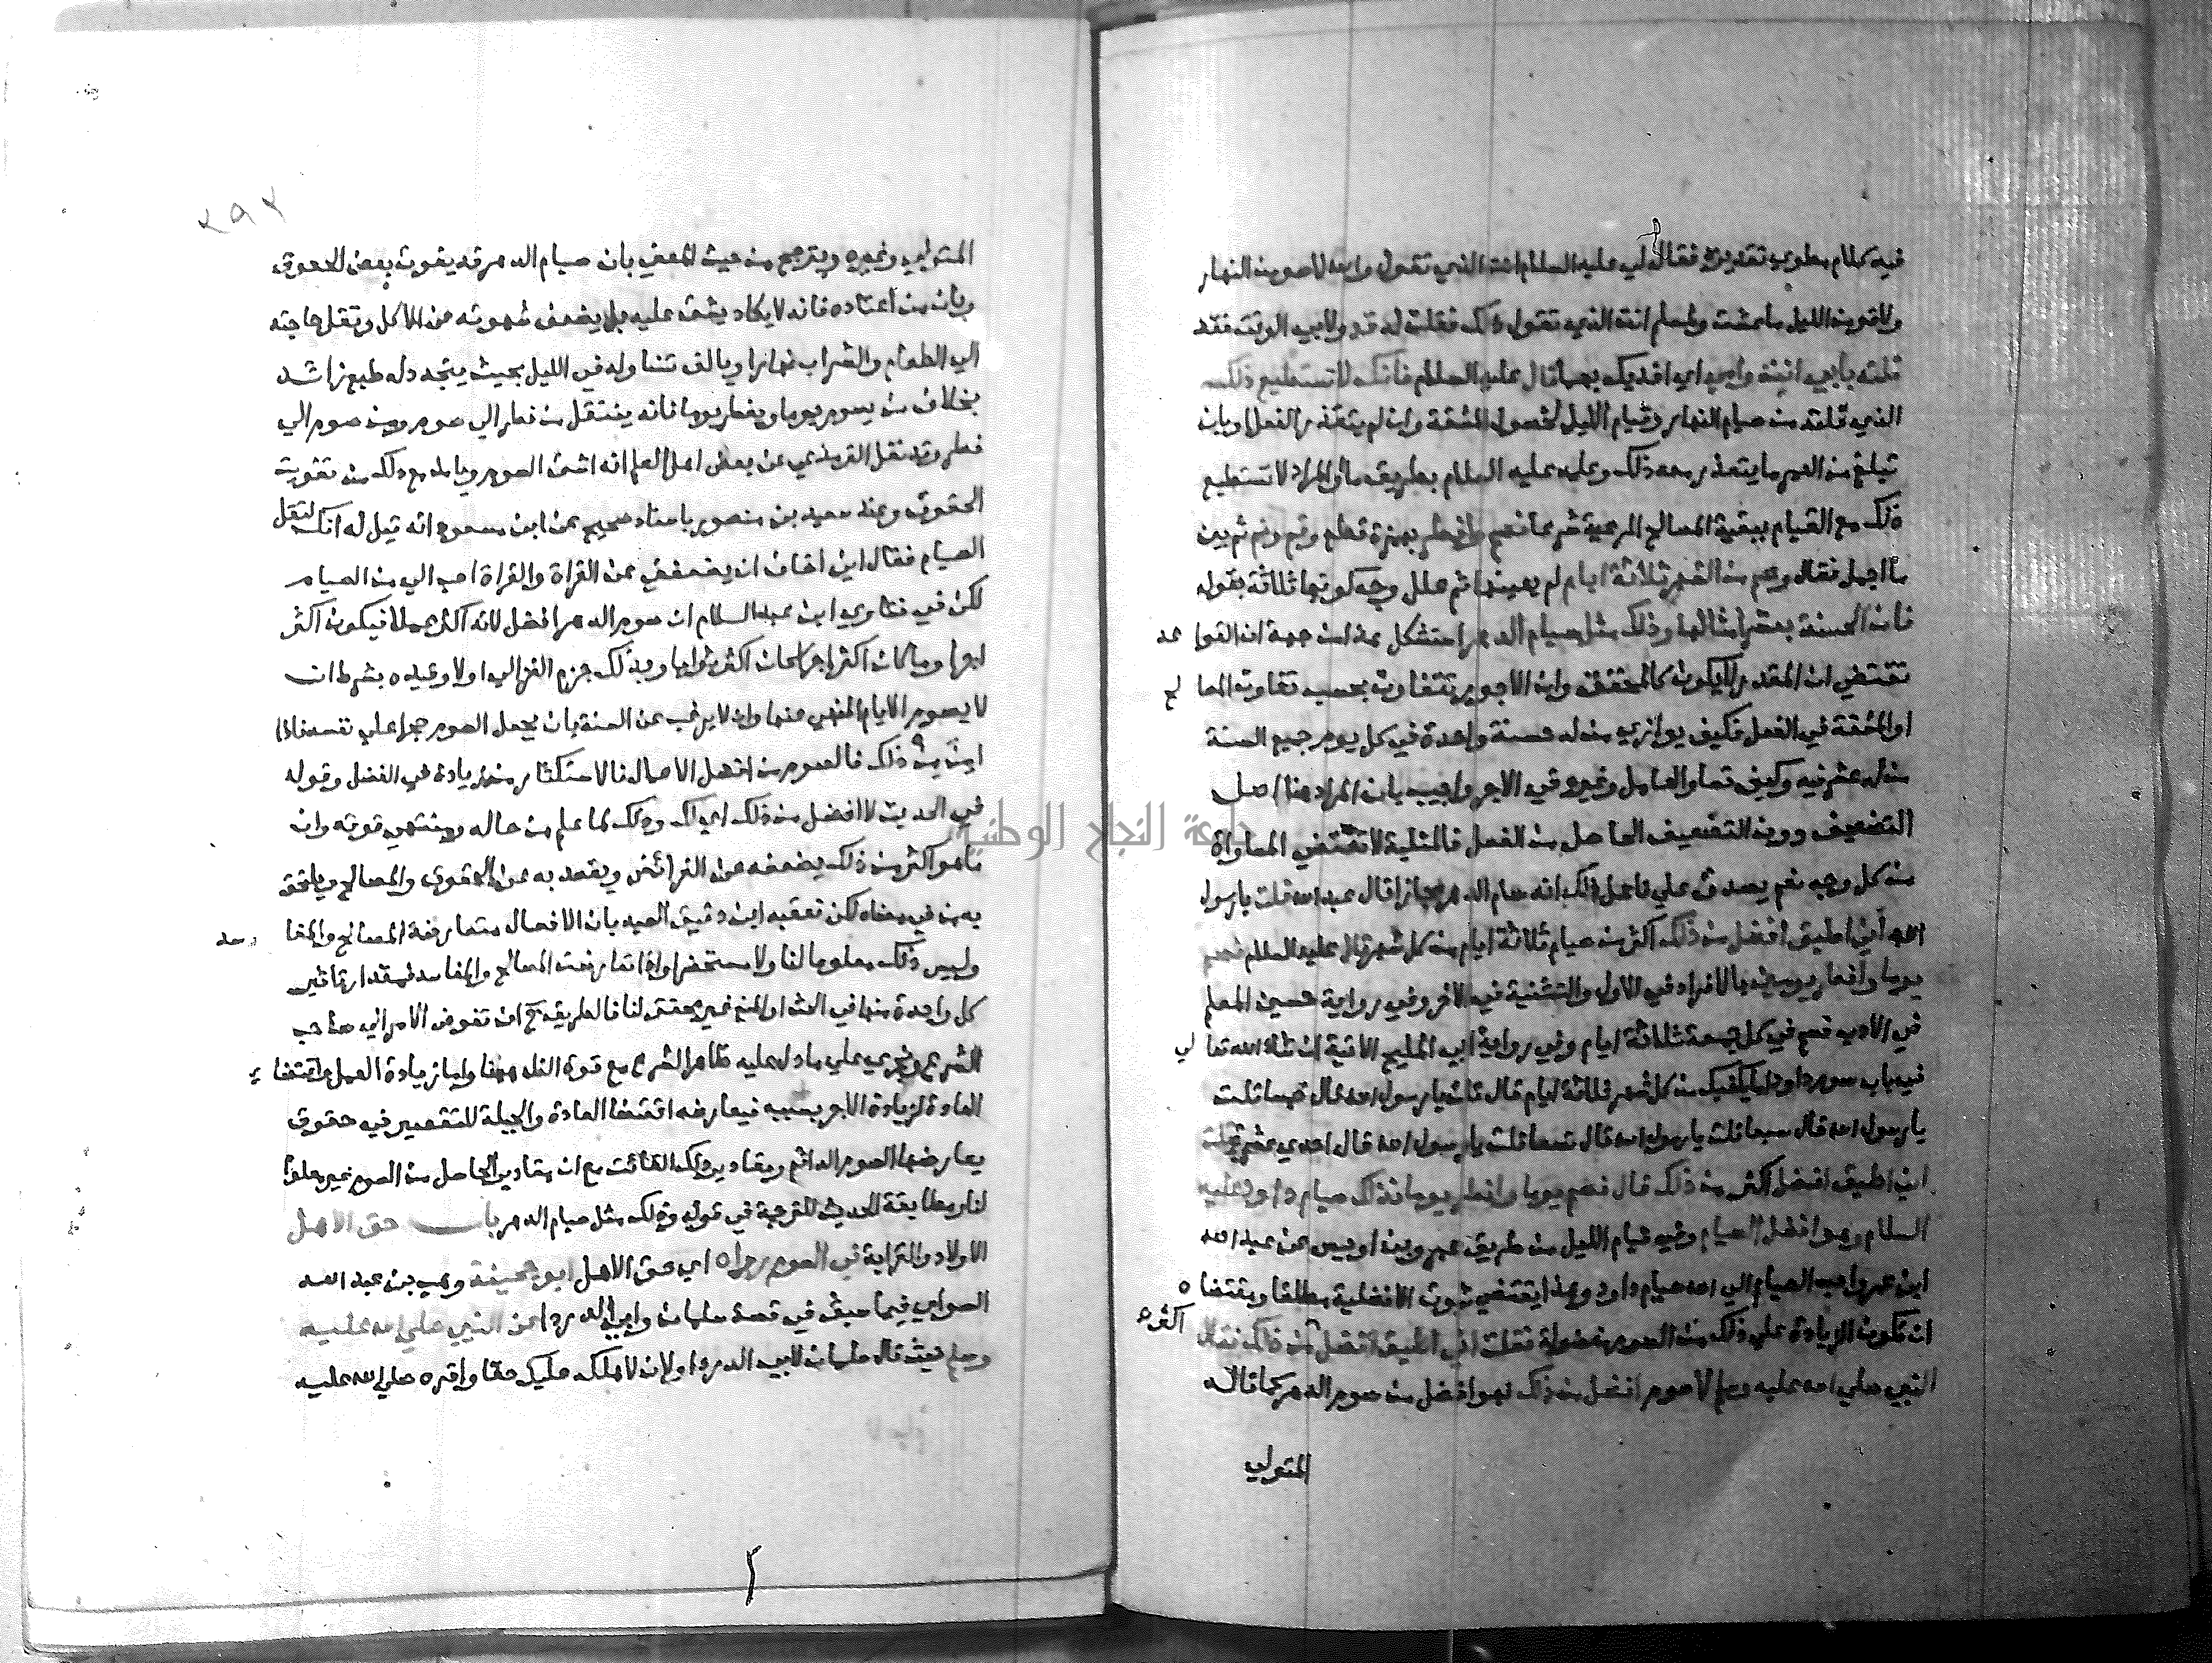 فيه كلام مطوي تقديره فقال لي عليه السلام انت الذي تقول والله لاصومن النهار
ولاقومن الليل ما عشت ولمسلم انت الذي تقول ذلك فقلت له قد ولابي الوقت فقد
قلته بابي انت وامي اي افديك بهما قال عليه السلام فانك لا تستطيع ذلك
الذي قلته من صيام النهار وقيام الليل لحصول المشقة وان لم يتعذر الفعل او بان
تبلغ من العمر ما يتعذر معه ذلك وعلمه عليه السلام بطريق ما او المراد لا تستطيع
ذلك مع القيام ببقية المصالح المرعية شرعا فصم وافطر بهمزة قطع وقم ونم ثم بين
ما اجمل فقال وصم من الشهر ثلاثة ايام لم يعينها ثم علل وجه كونها ثلاثة بقوله
فان الحسنة بعشر امثالها وذلك مثل صيام الدهر استشكل هذا من جهة ان القواعد
تقتضي ان المقدر لا يكون كالمحقق وان الاجور تتفاوت بحسب تفاوت المصالح
او المشقة في الفعل فكيف يوازي من له حسنة واحدة في كل يوم جميع السنة
من له عشر فيه وكيف تساوا العامل وغيره في الاجر واجيب بان المراد هنا اصل
التضعيف دون التضعيف الحاصل من الفعل فالمثلية لا تقتضي المساواة
من كل وجه نعم يصدق على فاعل ذلك انه صام الدهر مجازا قال عبد الله قلت يا رسول
الله اني اطيق افضل من ذلك اكثر من صيام ثلاثة ايام من كل شهر قال عليه السلام فصم
يوما وافطر يومين بالافراد في الاول والتثنية في الاخر وفي رواية حسين المعلم
في الادب فصم في كل جمعة ثلاثة ايام وفي رواية ابي المليح الاتية ان شاء الله تعالي
في باب صوم داود اما يكفيك من كل شهر ثلاثة ايام قال قلت يا رسول الله قال خمسا قلت
يا رسول الله قال سبعا قلت يا رسول الله قال تسعا قلت يا رسول الله قال احدي عشر قلت
اني اطيق افضل اكثر من ذلك قال فصم يوما وافطر يوما فذلك صيام داود عليه
السلام وهو افضل الصيام وفي قيام الليل من طريق عمرو بن اويس عن عبد الله
ابن عمرو احب الصيام الي الله صيام داود وهذا يقتضي ثبوت الافضلية مطلقا ومقتضاه
ان تكون الزيادة علي ذلك من الصوم مفضولة فقلت اني اطيق افضل من ذلك فقال
اكثر
النبي صلي الله عليه وسلم لا صوم افضل من ذلك فهو افضل من صوم الدهر كما قاله
المتولي
٢٩٢
المتولي وغيره ويترجح من حيث المعني بان صيام الدهر قد يفوت بعض الحقوق
وبان من اعتاده فانه لا يكاد يشق عليه بل يضعف شهوته عن الاكل وتقل حاجته
الي الطعام والشراب نهارا ويالف تناوله في الليل بحيث يتجدد له طبع زائد
بخلاف من يصوم يوما ويفطر يوما فانه ينتقل من فطر الي صوم ومن صوم الي
فطر وقد نقل الترمذي عن بعض اهل العلم انه اشق الصوم ويامن مع ذلك من تفويت
الحقوق وعند سعيد بن منصور باسناد صحيح عن ابن مسعود انه قيل له انك لتقل
الصيام فقال اني اخاف ان يضعفني عن القراة والقراة احب الي من الصيام
لكن في فتاوي ابن عبد السلام ان صوم الدهر افضل لانه اكثر عملا فيكون اكثر
اجرا وما كان اكثر اجرا كان اكثر ثوابا وبذلك جزم الغزالي اولا وقيده بشرط ان
لا يصوم الايام المنهي عنها وان لا يرغب عن السنة بان يجعل الصوم حجرا علي نفسه فاذا
امن من ذلك فالصوم من افضل الاعمال فالاستكثار منه زيادة في الفضل وقوله
في الحديث لا افضل من ذلك اي لك وذلك لما علم من حاله ومنتهي قوته وان
ما هو اكثر من ذلك يضعفه عن الفرائض ويقعد به عن الحقوق والمصالح ويلحق
به من في معناه لكن تعقبه ابن دقيق العيد بان الافعال متعارضة المصالح والمفاسد
وليس ذلك معلوما لنا ولا مستحضرا واذا تعارضت المصالح والمفاسد فمقدار تاثير
كل واحدة منها في الحث او المنع غير محقق لنا فالطريق ح ان نفوض الامر الي صاحب
الشرع ونجري علي ما دل عليه ظاهر الشرع مع قوة الظاهر هنا واما زيادة العمل واقتضا
العادة لزيادة الاجر بسببه فيعارضه اقتضا العادة والجبلة للتقصير فيه حقوق
يعارضها الصوم الدائم ومقادير ذلك الفائت مع ان مقادير الحاصل من الصوم غير معلوم
لنا ومطابقة الحديث للترجمة في قوله وذلك مثل صيام الدهر باب حق الاهل
الاولاد والقرابة في الصوم رواه اي حق الاهل ابو جحيفة وهب بن عبد الله
السواي فيما سبق في قصة سلمان وابي الدردا عن النبي صلي الله عليه
وسلم حيث قال سلمان لابي الدردا وان لاهلك عليك حقا واقره صلي الله عليه